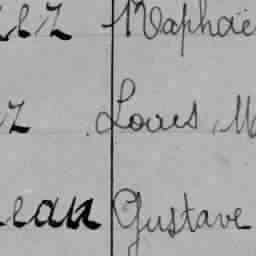 Raphaë
Louis M
ean Gustave